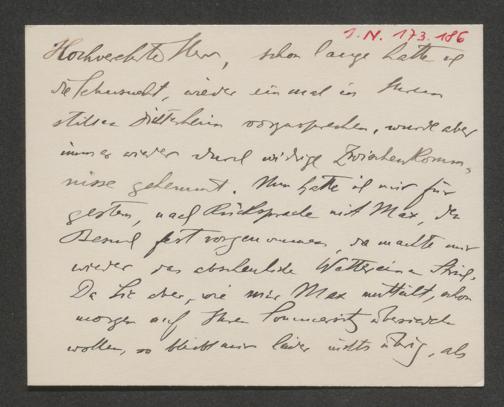 I.N. 173.186
Hochverehrter Herr, schon lange hatte ich
die Sehnsucht, wieder einmal in Ihrem
stillen Dichterheim vorzusprechen, wurde aber
immer wieder durch widrige Zwischenkomm-
nisse gehemmt. Nun hatte ich mir für
gestern, nach Rücksprache mit Max, den
Besuch fest vorgenommen, da machte mir
wieder das abscheuliche Wetter einen Strich.
Da Sie aber, wie mir Max mitteilt, schon
morgen auf Ihren Sommersitz übersiedeln
wollen, so bleibt mir leider nichts übrig, als